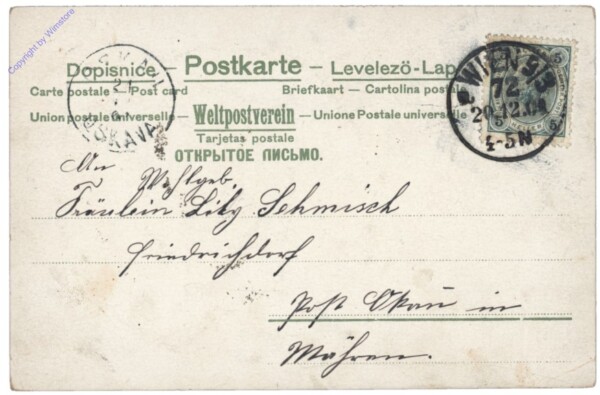 Copyright by Wimstore
Dopisnice – Postkarte – Levelező-Lap
Carte postale – Post card Briefkaart – Cartolina postale
Union postale universelle – Weltpostverein – Unione Postale universelle
Tarjetas postale
ОТКРЫТОЕ ПИСЬМО.
WIEN 9/3
72
4-5N
An Wohlgeb.
Fräulein Lily Sehmisch
Friedrichdorf
Post Okau in
Mähren.